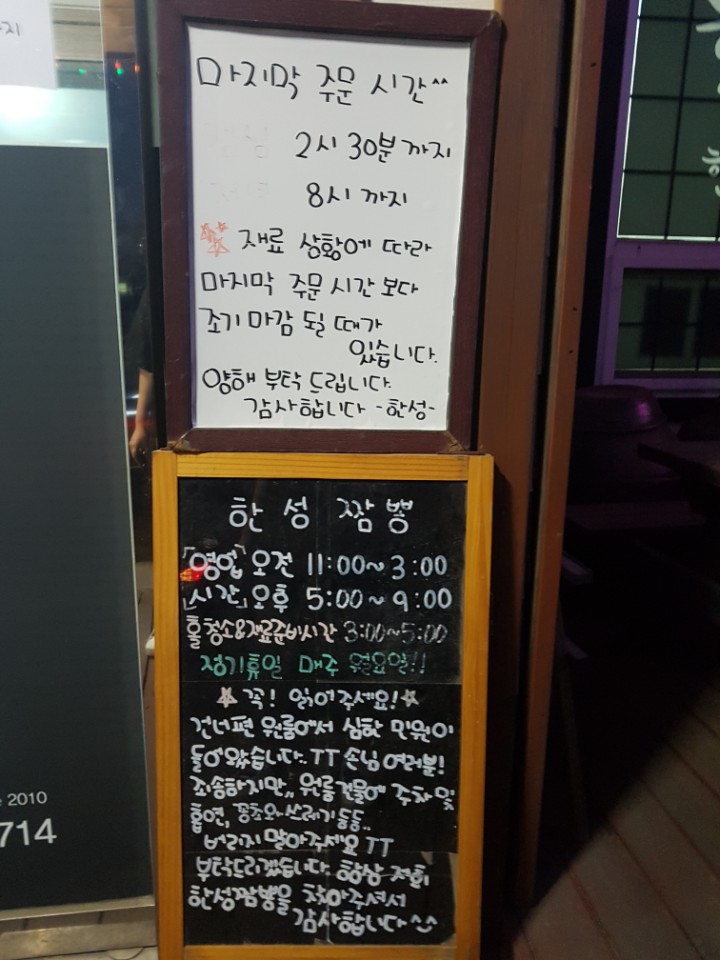 마지막 주문 시간^^
2시 30분 까지
8시 까지
재료 상황에 따라
마지막 주문 시간 보다
조기 마감 될 때가
있습니다.
양해 부탁 드립니다.
감사합니다 -한성-
한성 짬뽕
「영업」 오전 11:00~3:00
「시간」 오후 5:00~9:00
홀청소&재료준비시간 3:00~5:00
정기휴일 매주 월요일!!
☆꼭! 읽어주세요!☆
건너편 원룸에서 심한 민원이
들어왔습니다.. TT 손님 여러분!
죄송하지만,, 원룸건물에 주차 및
흡연, 꽁초와 쓰레기 등등..
버리지 말아주세요 TT
부탁드리겠습니다 항상 저희
한성짬뽕을 찾아주셔서
감사합니다^^
2010
714